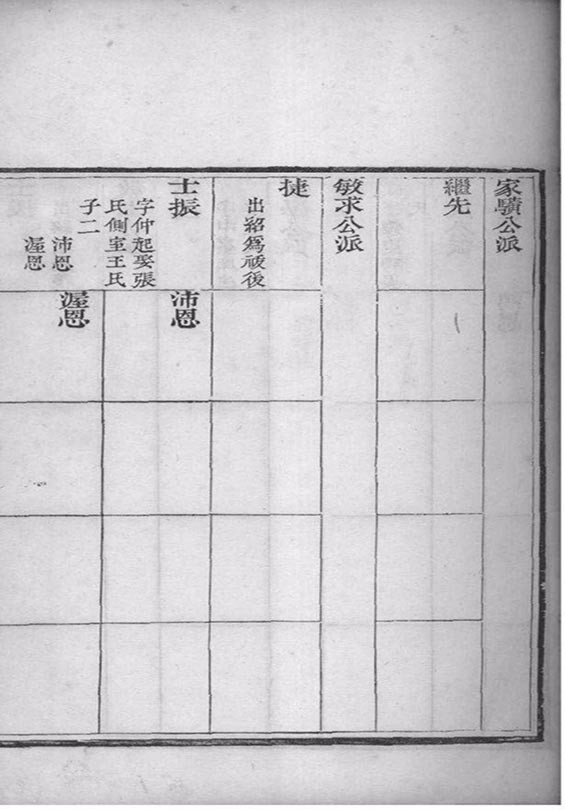 家驥公派
繼先
敏求公派
捷
出紹爲祓後
士振
字仲起娶張
氏側室王氏
子二
沛恩
渥恩
沛恩
渥恩